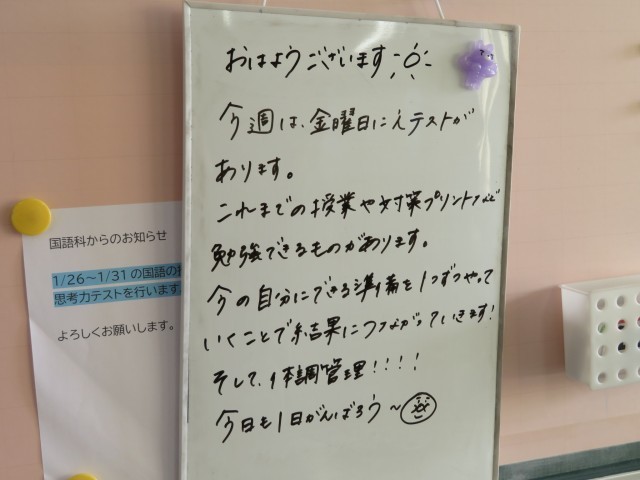 おはようございます
今週は、金曜日にえテストが
あります。
これまでの授業や対策プリントなど
勉強できるものがあります。
今の自分にできる準備を1つずつやって
いくことで結果につながっていきます!
そして、体調管理!!!!
今日も1日がんばろう〜
国語科からのお知らせ
1/26〜1/31の国語の
思考力テストを行います
よろしくお願いします。